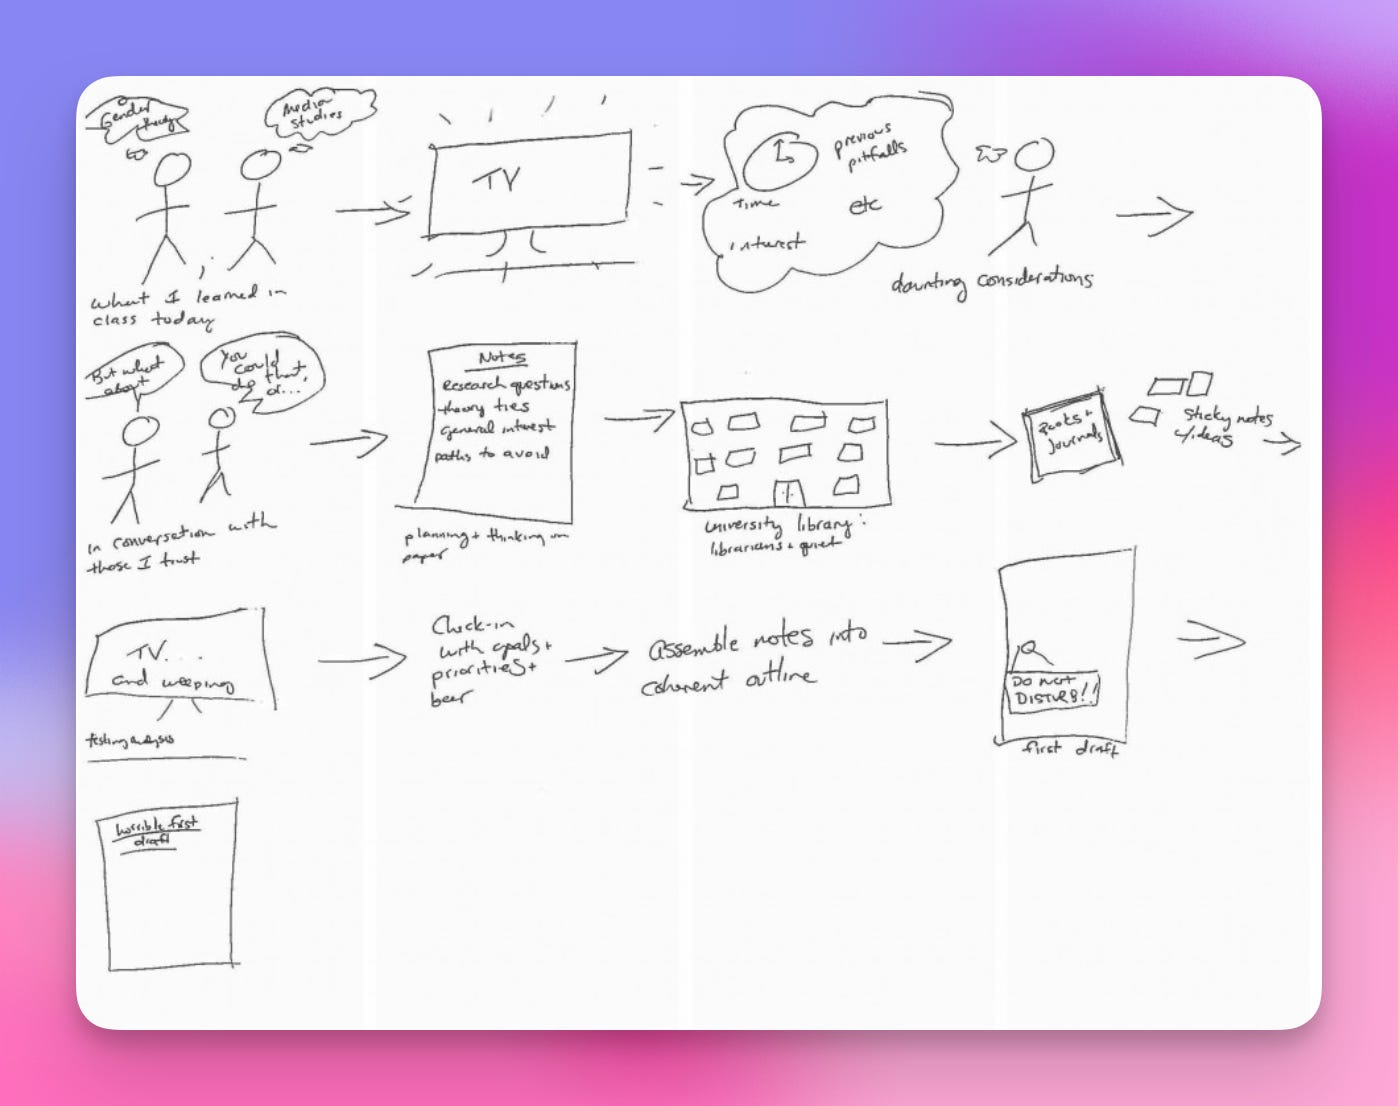 Gender
Media
Studies
what I learned in
class today
TV
previous
pitfalls
time
etc
interest
daunting considerations
But what
about
You
could
do that,
or...
in conversation with
those I trust
Notes
research questions
theory ties
general interest
paths to avoid
planning + thinking on
paper
university library:
librarians + quiet
Books +
Journals
Sticky notes
c/ideas
TV...
and weeping
testing analysis
Check-in
with goals +
priorities +
beer
Assemble notes into
coherent outline
DO NOT
DISTURB!!
first draft
horrible first
draft